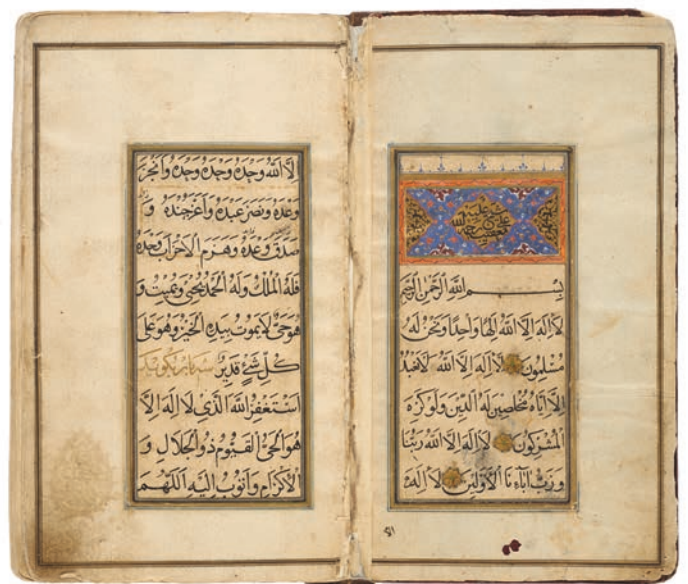 بِسْمِ اللهِ الرَّحْمٰنِ الرَّحِيمِ
لَا اِلٰهَ اِلَّا اللهُ اِلٰهًا وَاحِدًا وَنَحْنُ لَهُ
مُسْلِمُونَ لَا اِلٰهَ اِلَّا اللهُ لَا نَعْبُدُ
اِلَّا اِيَّاهُ مُخْلِصِينَ لَهُ الدِّينَ وَلَوْ كَرِهَ
الْمُشْرِكُونَ لَا اِلٰهَ اِلَّا اللهُ رَبُّنَا
وَرَبُّ آبَاءِنَا الْاَوَّلِينَ لَا اِلٰهَ
اِلَّا اللهُ وَحْدَهُ وَحْدَهُ وَحْدَهُ وَاَنْجَزَ
وَعْدَهُ وَنَصَرَ عَبْدَهُ وَاَعَزَّ جُنْدَهُ وَ
صَدَقَ وَعْدَهُ وَهَزَمَ الْاَحْزَابَ وَحْدَهُ
فَلَهُ الْمُلْكُ وَلَهُ الْحَمْدُ يُحْيِى وَيُمِيتُ وَ
هُوَ حَىٌّ لَا يَمُوتُ بِيَدِهِ الْخَيْرُ وَهُوَ عَلٰى
كُلِّ شَىْءٍ قَدِيرٌ سه بار بگوید
اَسْتَغْفِرُ اللهَ الَّذِى لَا اِلٰهَ اِلَّا
هُوَ الْحَىُّ الْقَيُّومُ ذُو الْجَلَالِ وَ
الْاِكْرَامِ وَاَتُوبُ اِلَيْهِ اَللّٰهُمَّ